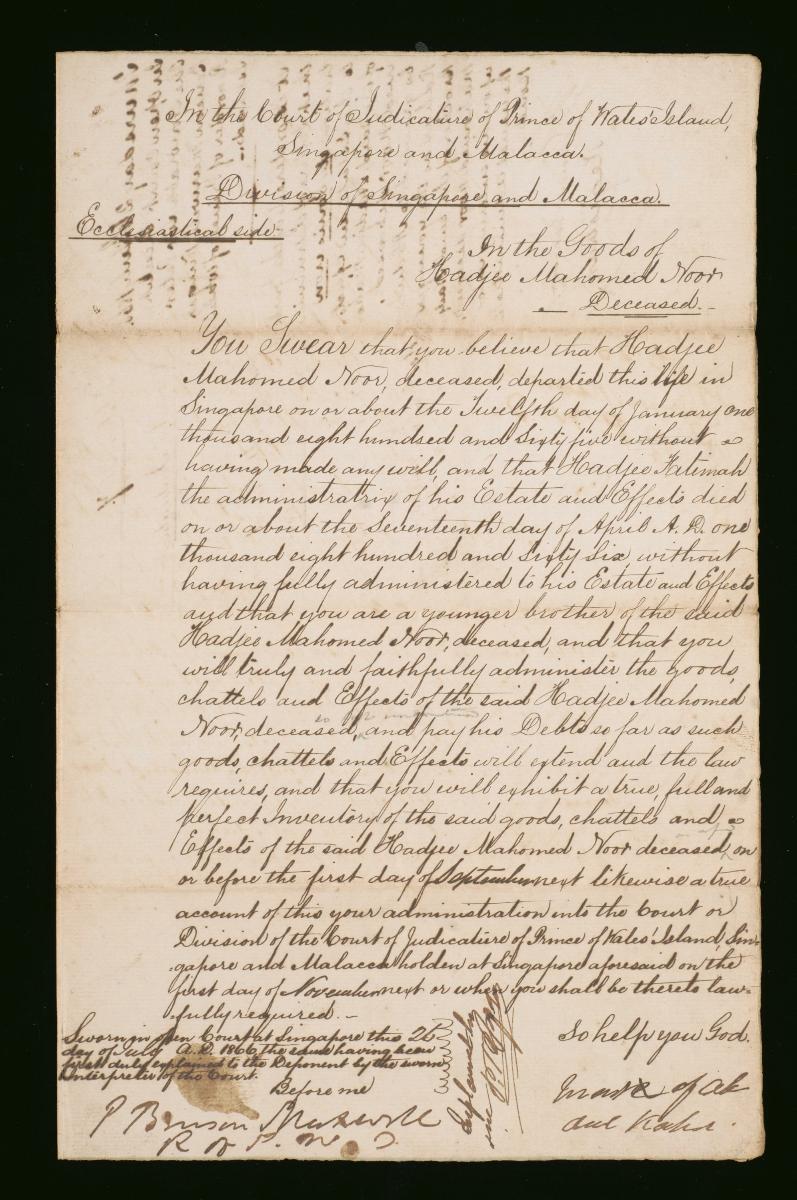 In the Court of Judicature of Prince of Wales' Island,
Singapore and Malacca.
Division of Singapore and Malacca.
Ecclesiastical side
In the Goods of
Hadjee Mahomed Noor
Deceased.
You Swear that you believe that Hadjee
Mahomed Noor, deceased, departed this life in
Singapore on or about the Twelfth day of January one
thousand eight hundred and Sixty five without
having made any will, and that Hadjee Fatimah
the administratrix of his Estate and Effects died
on or about the Seventeenth day of April A. D. one
thousand eight hundred and Sixty Six, without
having fully administered to his Estate and Effects
and that you are a younger brother of the said
Hadjee Mahomed Noor, deceased, and that you
will truly and faithfully administer the goods,
chattels and Effects of the said Hadjee Mahomed
Noor, deceased, and pay his Debts so far as such
goods, chattels and Effects will extend and the law
requires, and that you will exhibit a true, full and
perfect Inventory of the said goods, chattels and
Effects of the said Hadjee Mahomed Noor deceased, on
or before the first day of September next likewise a true
account of this your administration into the Court or
Division of the Court of Judicature of Prince of Wales' Island, Sin-
gapore and Malacca holden at Singapore aforesaid on the
first day of November next or when you shall be thereto law-
fully required.
So help you God.
Sworn in open Court at Singapore this 25
day of July A.D. 1866, the same having been
first duly explained to the Deponent by the sworn
interpreter of the Court.
Before me
P Benson Maxwell
R of P. W. I.
Explained by
me
mark of Ab
dul Kader.